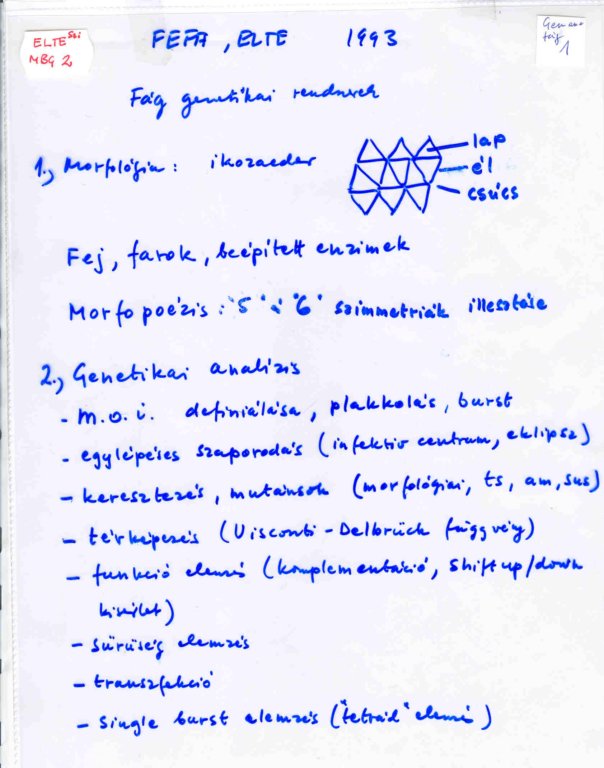 ELTE Szi
MBG 2
FEFA, ELTE 1993
fág
1
Fág genetikai rendszerek
1., Morfológia: ikozaeder
lap
él
csúcs
Fej, farok, beépített enzimek
Morfopoézis: "5" "6" szimmetriák illesztése
2., Genetikai analízis
- m.o.i. definiálása, plakkolás, burst
- egylépéses szaporodás (infektiv centrum, eklipsz)
- keresztezés, mutánsok (morfológiai, ts, am, sus)
- térképezés (Visconti-Delbrück függvény)
- funkció elemzés (komplementáció, shift up/down
kisérlet)
- sűrűség elemzés
- transzfekció
- single burst elemzés ("tetrád" elemzés)